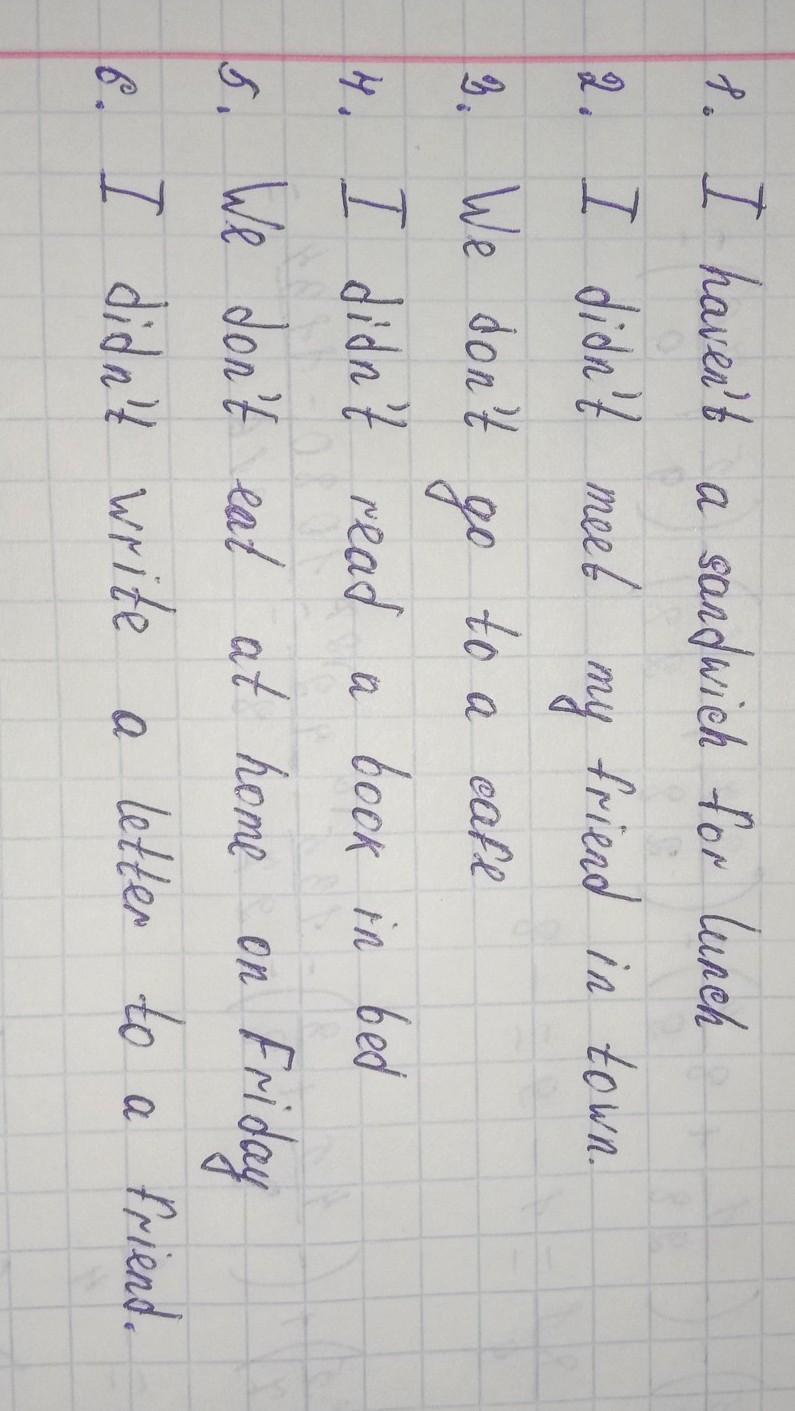 1. I haven't a sandwich for lunch
2. I didn't meet my friend in town.
3. We don't go to a cafe
4. I didn't read a book in bed
5. We don't eat at home on Friday
6. I didn't write a letter to a friend.